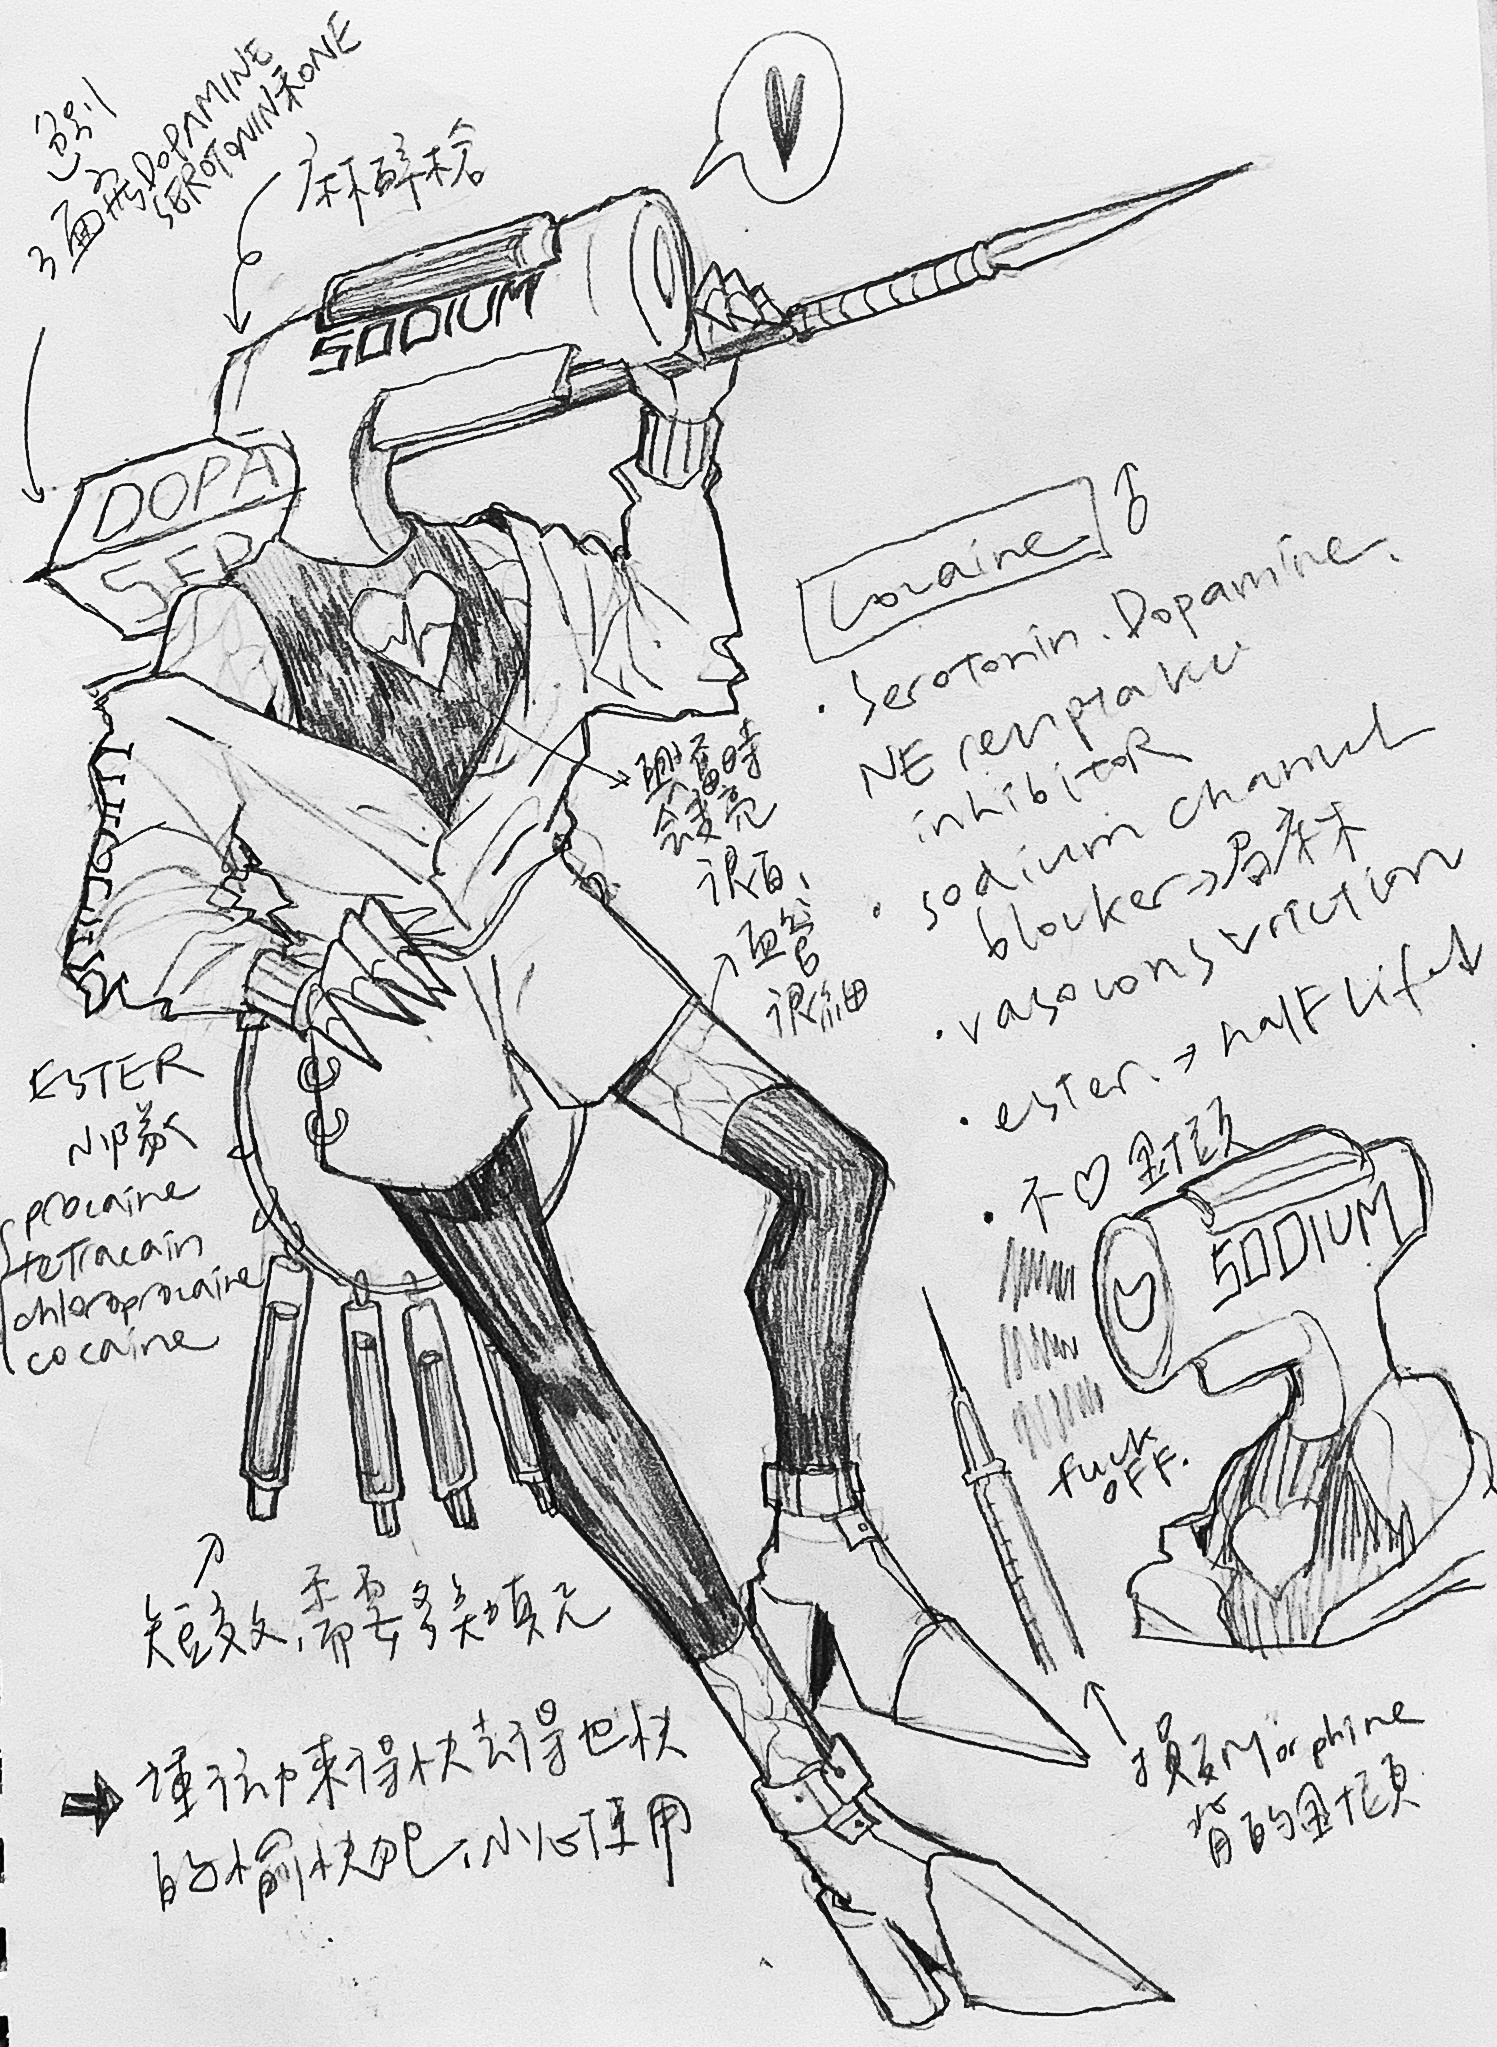 3面柱DOPAMINE
SEROTONIN和ONE
麻醉槍
SODIUM
DOPA
SER
Cocaine ♂
· Serotonin. Dopamine.
NE reuptake
inhibitoR
· sodium channel
blocker→局麻
· vasoconstriction
· ester. → half life↓
· 不♡金項
興奮時
會變亮
很白,
血管
很細
ESTER
procaine
tetracain
chloroprocaine
cocaine
SODIUM
fuck
OFF.
短效,需要多次填充
→ 運動來得快去得也快
的愉快吧,小心使用
Morphine
背的金項